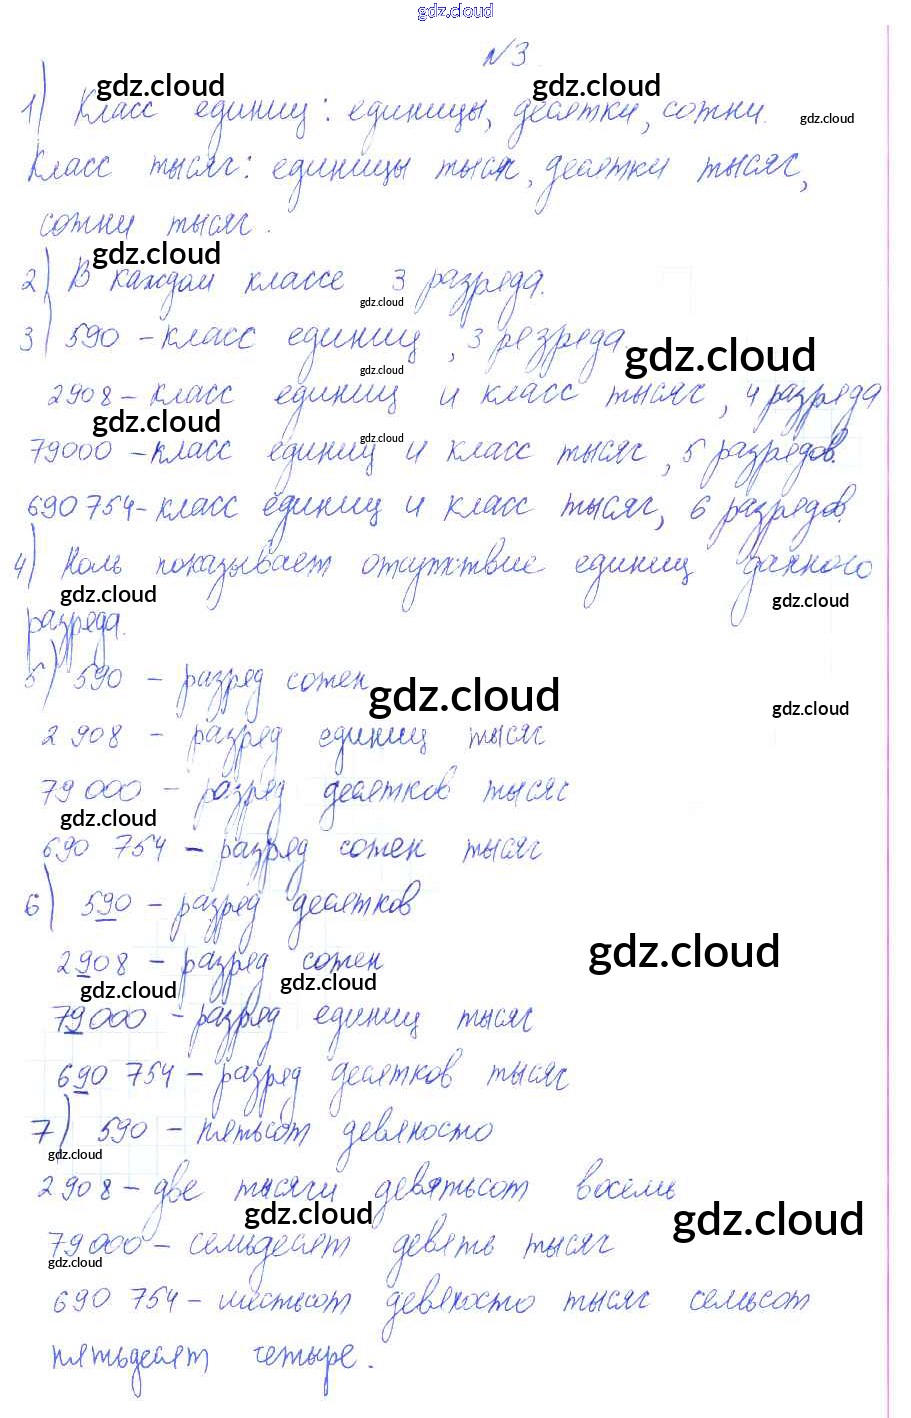 gdz.cloud
№3.
gdz.cloud gdz.cloud
1) Класс единиц: единицы, десятки, сотни. gdz.cloud
Класс тысяч: единицы тысяч, десятки тысяч,
сотни тысяч.
gdz.cloud
2) В каждом классе 3 разряда.
gdz.cloud
3) 590 - класс единиц, 3 резряда
gdz.cloud
gdz.cloud
2908 - класс единиц и класс тысяч, 4 разряда
gdz.cloud gdz.cloud
79000 - класс единиц и класс тысяч, 5 разрядов.
690 754 - класс единиц и класс тысяч, 6 разрядов.
4) Ноль показывает отсутствие единиц данного
gdz.cloud gdz.cloud
разряда.
5) 590 - разряд сотен
gdz.cloud gdz.cloud
2 908 - разряд единиц тысяч
79 000 - разряд десятков тысяч
gdz.cloud
690 754 - разряд сотен тысяч
6) 590 - разряд десятков
gdz.cloud
2908 - разряд сотен
gdz.cloud gdz.cloud
79000 - разряд единиц тысяч
690 754 - разряд десятков тысяч
7) 590 - пятьсот девяносто
gdz.cloud
2 908 - две тысячи девятьсот восемь
gdz.cloud gdz.cloud
79 000 - семьдесят девять тысяч
gdz.cloud
690 754 - шестьсот девяносто тысяч семьсот
пятьдесят четыре.